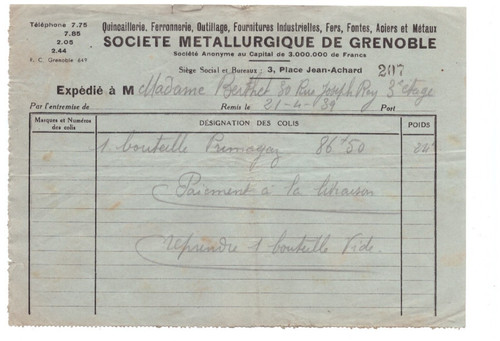 Téléphone 7.75
7.85
2.05
2.44
R. C. Grenoble
Quincaillerie, Ferronnerie, Outillage, Fournitures Industrielles, Fers, Fontes, Aciers et Métaux
SOCIETE METALLURGIQUE DE GRENOBLE
Société Anonyme au Capital de 3.000.000 de Francs
Siège Social et Bureaux : 3, Place Jean-Achard
207
Expédié à M Madame Berthet 80 Rue Joseph Rey 3e étage
Par l'entremise de Remis le 21-4-39 Port
Marques et Numéros des colis DÉSIGNATION DES COLIS POIDS
1 bouteille Primagaz 86+50
Paiement à la livraison
reprendre 1 bouteille Vide.